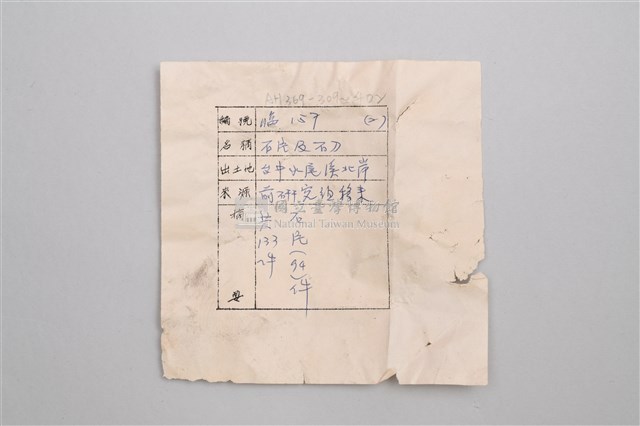 編號 臨 157 (2)
名稱 石片及石刀
出土地 台中水尾溪北岸
來源 前研究組移來
摘要 共133件 石片(94)件
國立臺灣博物館
National Taiwan Museum